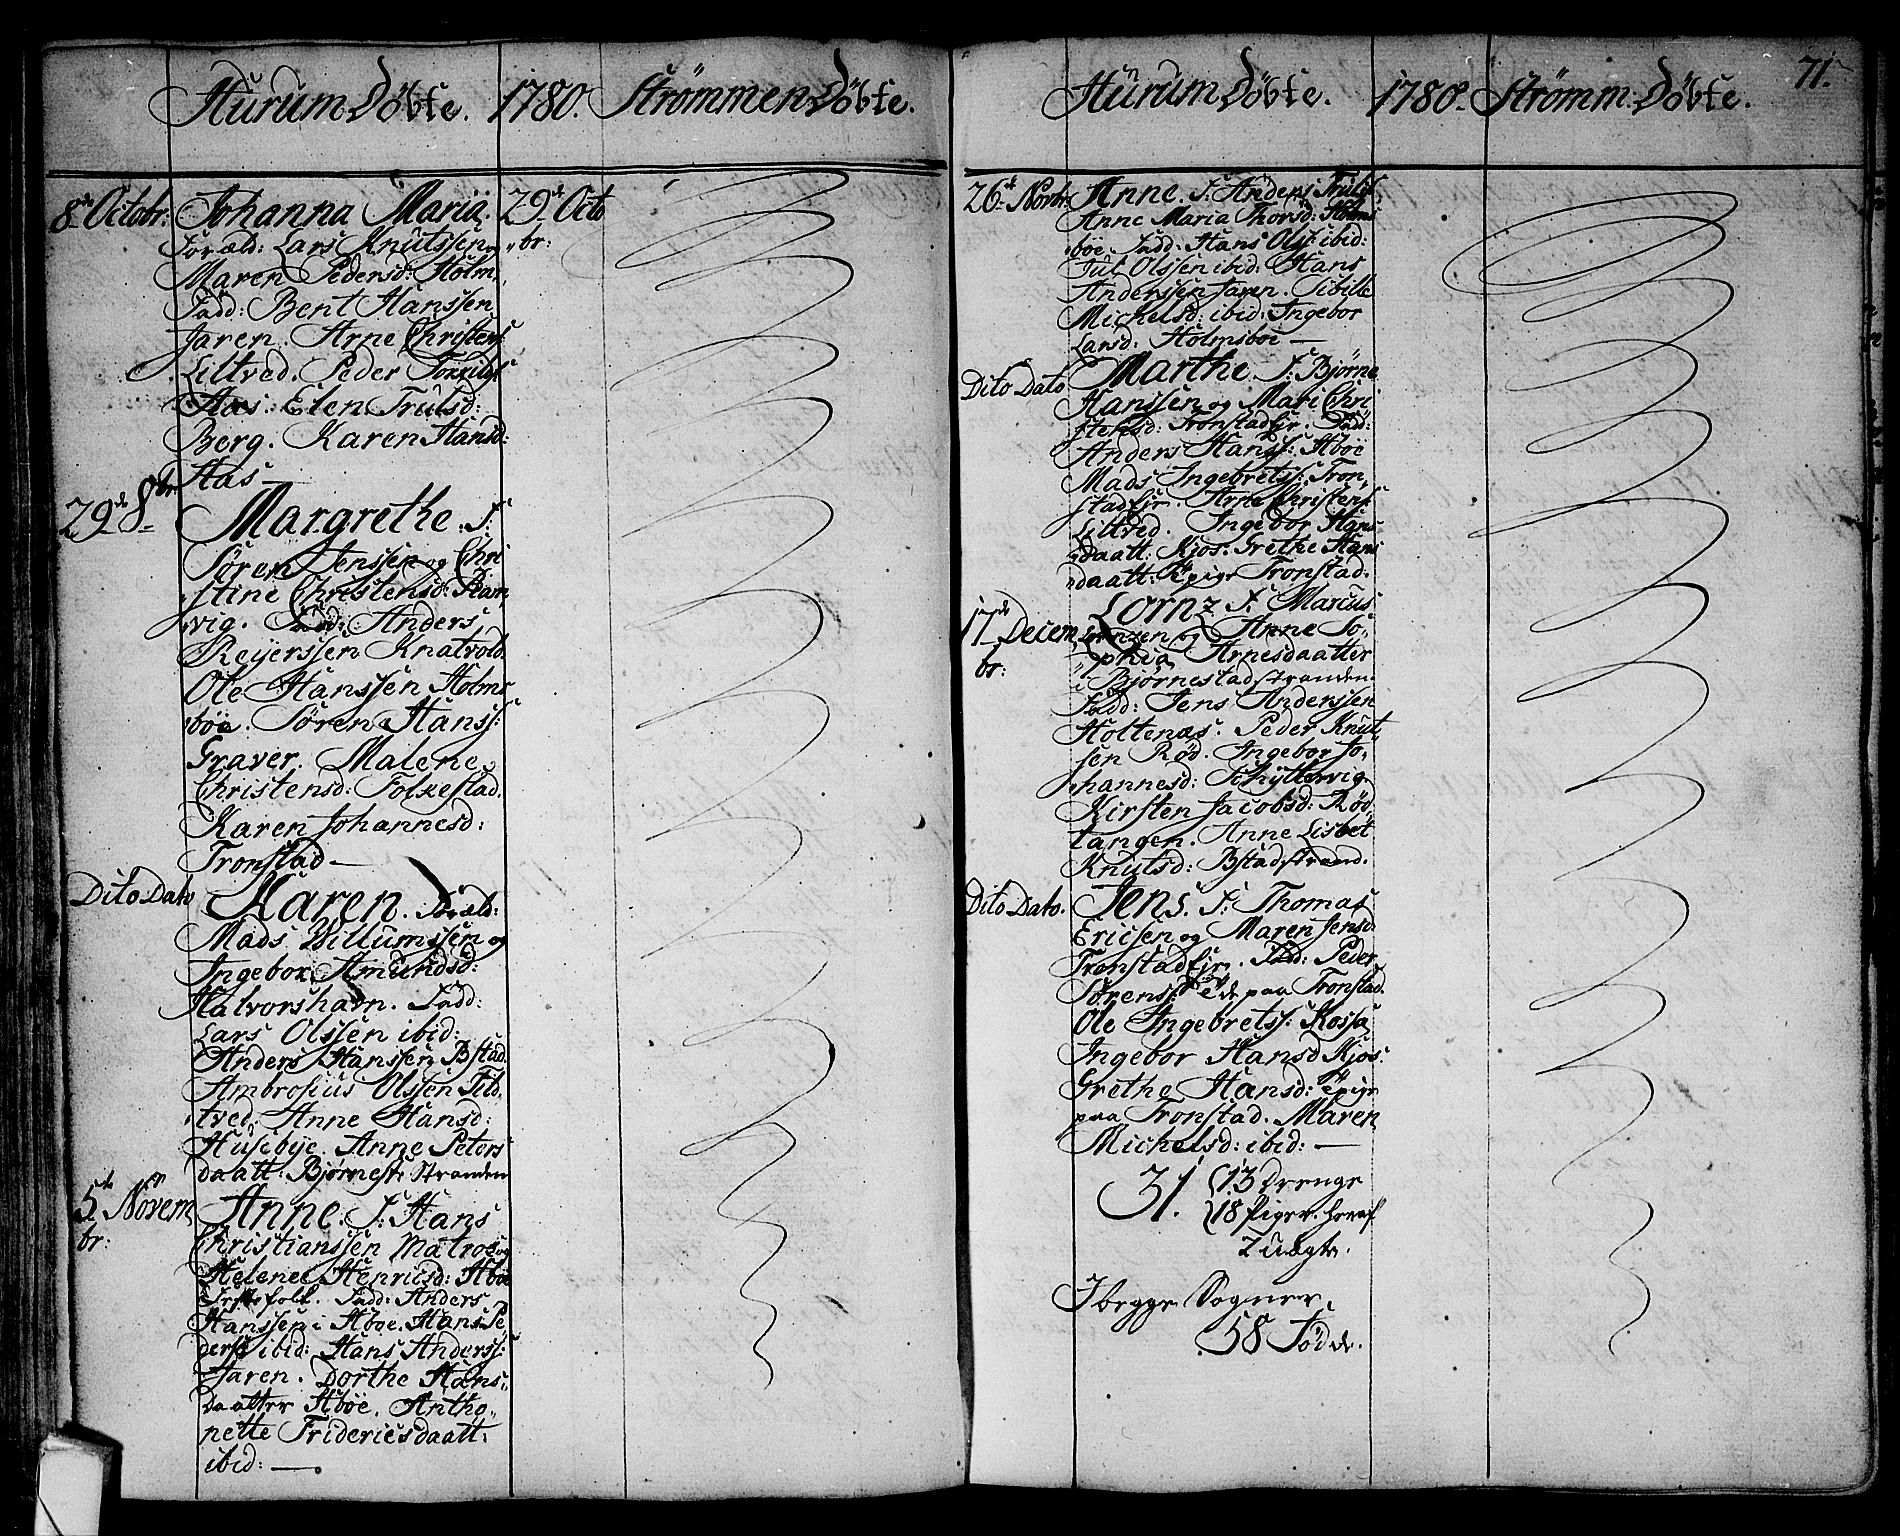 Hurum Döbte. 1780. Strømmen Döbte.
8de Octobr: Johanna Maria. 29de Octo
Foræld: Lars Knutssen og br:
Maren Pedersd: Holm,
Fadd: Bent Hanssen
Jaren. Arne Christens:
Liltved. Peder Torkilds
Aas. Elen Trulsd:
Berg. Karen Hansd:
Aas
29de 8br Margrethe. F:
Søren Jenssen og Chri
stine Christensd: Ram,
vig. Fad: Anders
Reyerssen Knatvold
Ole Hanssen Holms
böe. Søren Hanss:
Graver. Malene
Christensd: Folkestad.
Karen Johannesd:
Tronstad
Dito Dato Karen. Foræld:
Mads Willumssen og
Ingebor Amundsd:
Halvorshavn. Fadd:
Lars Olssen ibid:
Anders Hanssen Bstad.
Ambrosius Olssen Tib
tved. Anne Hansd:
Husebye. Anne Peters
daatt: Bjørnest: Stranden
5te Novem Anne. F: Hans
br: Christianssen Matros og
Helene Henricsd: Hböe
Fadd: Anders
Hanssen i Hböe. Hans Pe
derss ibid: Hans Anderss:
Jaren. Dorthe Hans
Daatter Hböe. Antho,
nette Fridericsdaatt:
ibid:
71.
Hurum Döbte. 1780. Strømm. Döbte.
26de Novbr: Anne. F: Anders Truls
Anne Maria Thorsd: Holms
böe. Fadd: Hans Olss: ibid:
Jul Olssen ibid: Hans
Anderssen Jaren. Sibille
Michelsd: ibid: Ingebor
Larsd: Holmsböe
Dito Dato Marthe. F: Bjørne
Hanssen og Mari Chri
stensd: Tronstad Ejr. Fadd:
Anders Hanss: Hböe
Mads Ingebretss: Tron,
stad Ejr. Arne Christens:
Liltved. Ingebor Hans
daatt: Kjos. Grethe Hans
daatt: Tronstad.
17de Decem, Lornz F. Marcus
br: Lornzen og Anne So
phia Arnesdaatter
i Bjørnestadstranden.
Fadd: Jens Anderssen
Holtenæs. Peder Knut
sen Rød. Ingebor Jo,
hannesd: Schyttervig
Kirsten Jacobsd: Rød
tangen. Anne Lisbet
Knutsd: Bstadstrand.
Dito Dato. Jens. F: Thomas
Ericsen og Maren Jensd:
Tronstad Ejr. Fadd: Peder
Sørenss: paa Tronstad.
Ole Ingebretss: Rossa,
Ingebor Hansd Kjos:
Grethe Hansd:
paa Tronstad. Maren
Michelsd: ibid:
31. 13 Drenge
18 Piger. heraf
2 uægte.
I begge Sogner
58 Födde.